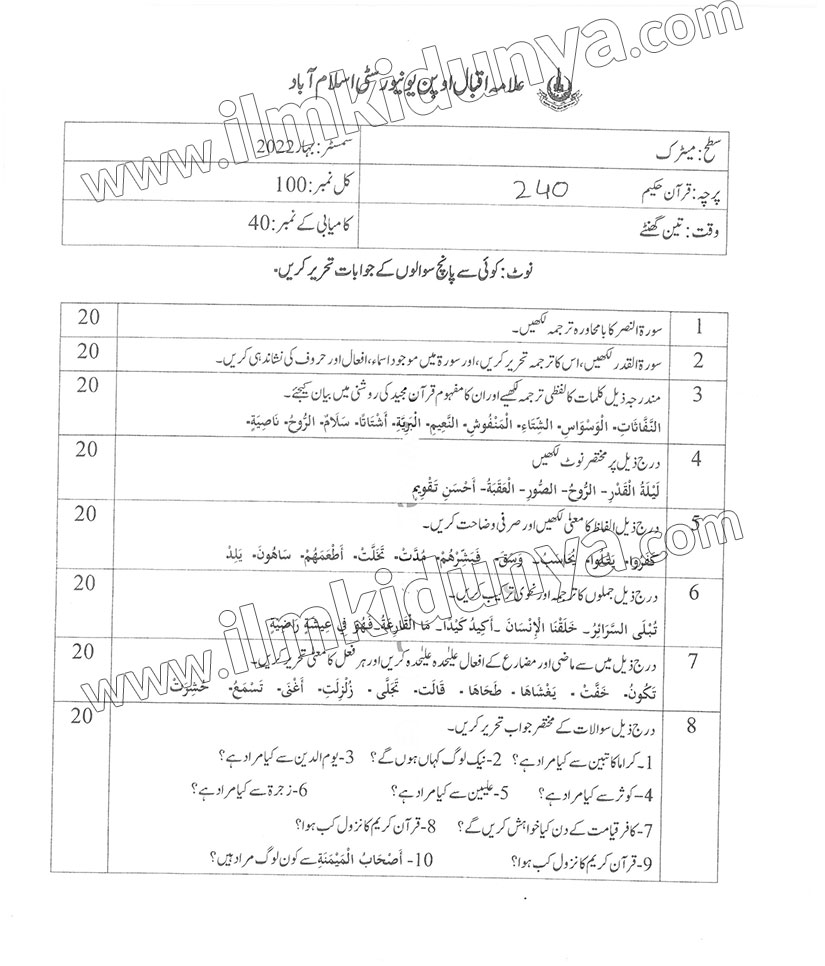 www.ilmkidunya.com
علامہ اقبال اوپن یونیورسٹی اسلام آباد
سطح: میٹرک سمسٹر: بہار 2022
پرچہ: قرآن حکیم 240 کل نمبر: 100
وقت: تین گھنٹے کامیابی کے نمبر: 40
نوٹ: کوئی سے پانچ سوالوں کے جوابات تحریر کریں۔
1 سورۃ النصر کا بامحاورہ ترجمہ لکھیں۔ 20
2 سورۃ القدر لکھیں، اس کا ترجمہ تحریر کریں، اور سورۃ میں موجود اسماء، افعال اور حروف کی نشاندہی کریں۔ 20
3 مندرجہ ذیل کلمات کا لفظی ترجمہ لکھیے اور ان کا مفہوم قرآن مجید کی روشنی میں بیان کیجئے۔ 20
النَّفَّاثَاتِ۔ الْوَسْوَاسِ۔ الشِّتَاءِ۔ الْمَنْفُوشِ۔ النَّعِيمِ۔ الْبَرِيَّةِ۔ أَشْتَاتًا۔ سَلَامٌ۔ الرُّوحُ۔ نَاصِيَةٍ۔
4 درج ذیل پر مختصر نوٹ لکھیں 20
لَيْلَةُ الْقَدْرِ- الرُّوحُ- الصُّورِ- الْعَقَبَةُ- أَحْسَنِ تَقْوِيمٍ
5 درج ذیل الفاظ کا معنی لکھیں اور صرفی وضاحت کریں۔ 20
كَفَرُوا۔ يَتْلُوا۔ يُحَاسَبُ۔ وَسَقَ۔ فَبَشِّرْهُمْ۔ مُدَّتْ۔ تَخَلَّتْ۔ أَطْعَمَهُمْ۔ سَاهُونَ۔ يَلِدْ
6 درج ذیل جملوں کا ترجمہ اور نحوی ترکیب کریں۔ 20
تُبْلَى السَّرَائِرُ۔ خَلَقْنَا الْإِنْسَانَ۔ أَكِيدُ كَيْدًا۔ مَا الْقَارِعَةُ۔ فَهُوَ فِي عِيشَةٍ رَاضِيَةٍ
7 درج ذیل میں سے ماضی اور مضارع کے افعال علیحدہ علیحدہ کریں اور ہر فعل کا معنی تحریر کریں۔ 20
تَكُونُ۔ خَفَّتْ۔ يَغْشَاهَا۔ طَحَاهَا۔ قَالَت۔ تَجَلَّى۔ زُلْزِلَتِ۔ أَغْنَى۔ تَسْمَعُ۔ حُشِرَتْ
8 درج ذیل سوالات کے مختصر جواب تحریر کریں۔ 20
1۔ کراماکاتبین سے کیا مراد ہے؟ 2- نیک لوگ کہاں ہوں گے؟ 3- یوم الدین سے کیا مراد ہے؟
4- کوثر سے کیا مراد ہے؟ 5- علیین سے کیا مراد ہے؟ 6- زجرۃ سے کیا مراد ہے؟
7- کافر قیامت کے دن کیا خواہش کریں گے؟ 8- قرآن کریم کا نزول کب ہوا؟
9- قرآن کریم کا نزول کب ہوا؟ 10- أَصْحَابُ الْمَيْمَنَةِ سے کون لوگ مراد ہیں؟
www.ilmkidunya.com